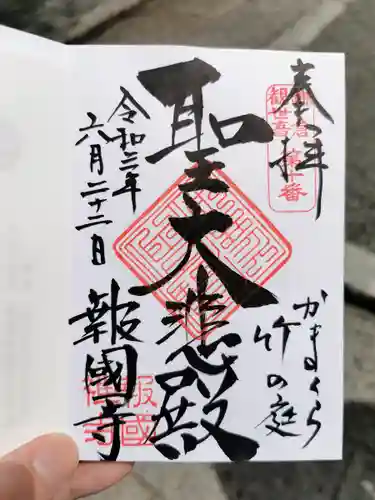 奉拝
鎌倉
観世音
第十番
かまくら
竹の庭
聖大悲殿
令和二年
六月二十二日
報國寺
報國
禅寺